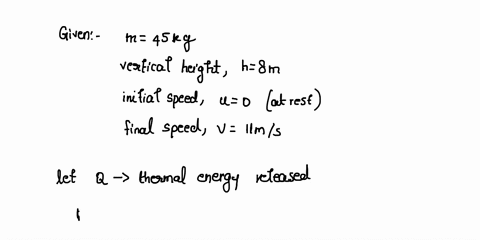 Given:- m = 45kg
vertical height, h=8m
initial speed, u=0 (at rest)
final speed, V = 11m/s
let Q -> thermal energy released